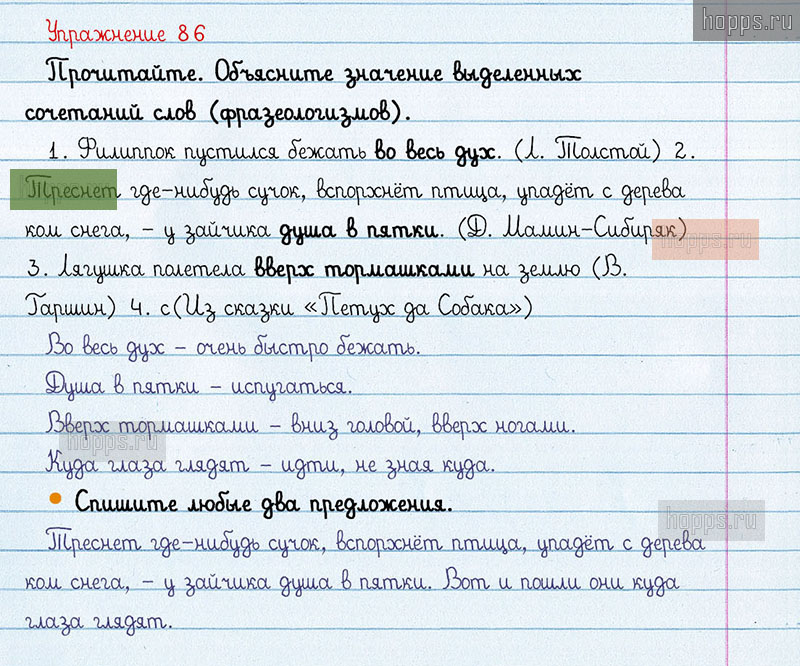 hopps.ru
Упражнение 86
Прочитайте. Объясните значение выделенных
сочетаний слов (фразеологизмов).
1. Филиппок пустился бежать во весь дух. (Л. Толстой) 2.
Треснет где-нибудь сучок, вспорхнёт птица, упадёт с дерева
ком снега, – у зайчика душа в пятки. (Д. Мамин-Сибиряк)
hopps.ru
3. Лягушка полетела вверх тормашками на землю (В.
Гаршин) 4. с(Из сказки «Петух да Собака»)
Во весь дух – очень быстро бежать.
Душа в пятки – испугаться.
Вверх тормашками – вниз головой, вверх ногами.
hopps.ru
Куда глаза глядят – идти, не зная куда.
Спишите любые два предложения.
hopps.ru
Треснет где-нибудь сучок, вспорхнёт птица, упадёт с дерева
ком снега, – у зайчика душа в пятки. Вот и пошли они куда
глаза глядят.